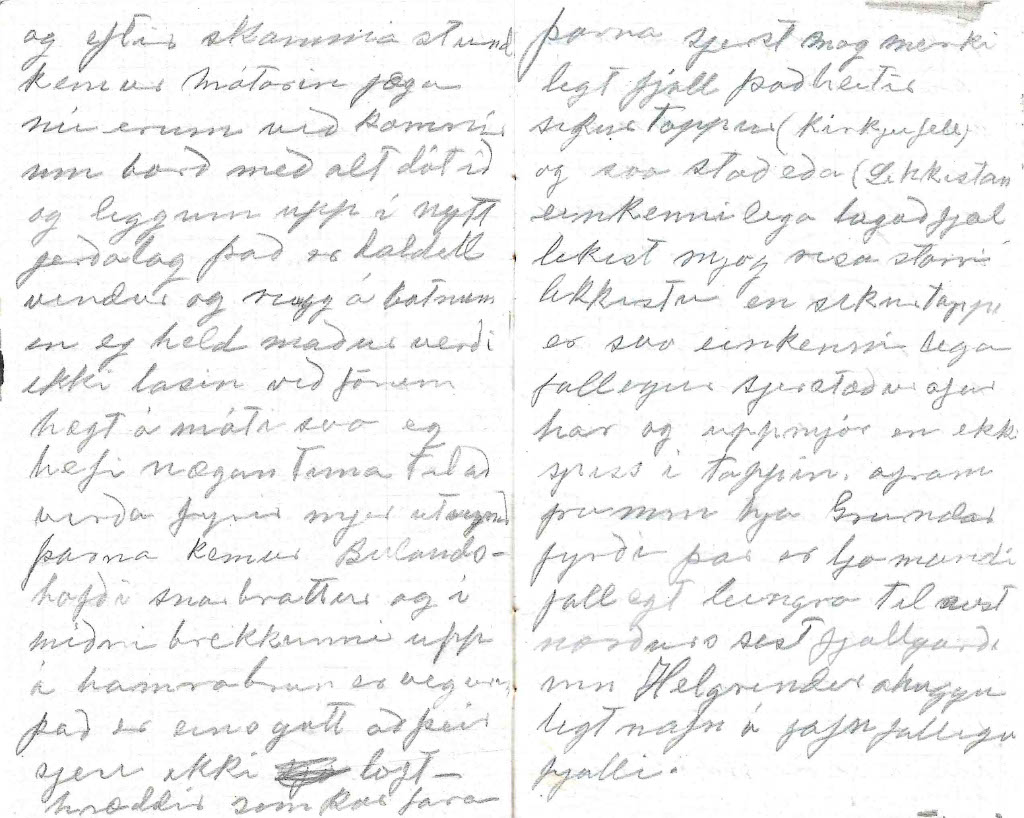 og eftir skamma stund
kemur mótorin jæja
nú erum við komnir
um borð með alt dótið
og leggum upp í nytt
ferðalag það er haldið
vindur og rugg á botnum
en eg held maður verði
ekki lasin við förum
hægt á máta svo eg
hefi nægan tima til að
verða fyrir mjer
þarna kemur Bulands-
hofði snarbrattur og í
miðri brekkunni upp
á hamrabrun er vegur,
það er eins gott að þeir
sjeu ekki loft-
hræddir sem þar fara
þarna sjest mog merki
legt fjall það heitir
sikurtoppur (Kirkjufell)
og svo stöð eða (Likkistan
einkennilega lagað fjal
likist mjog risa stórri
likkistu en sikurtoppr
er svo einkenni lega
fallegur sjerstæður ofur
har og uppmjór en ekki
spiss i toppin. afram
frumm hja Grundar
fyrði þar er ljomandi
fallegt leingra til
norðurs sest fjallgarð
inn Helgrindur ohuggu
legt nafn á jafn fallegu
fjalli.